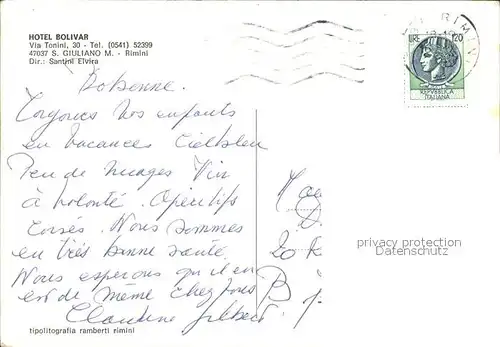 HOTEL BOLIVAR
Via Tonini, 30 - Tel. (0541) 52399
47037 S. GIULIANO M. - Rimini
Dir.: Santini Elvira
RIMINI
LIRE 120
REPVBBLICA
ITALIANA
vos enfants
en vacances Ciel bleu
Peu de nuages Vin
à volonté. Apéritifs
corsés. Nous sommes
en très bonne santé.
Nous esperons qu'il en
est de même chez vous
Claudine Gilbert
20 R
B
privacy protection
Datenschutz
tipolitografia ramberti rimini